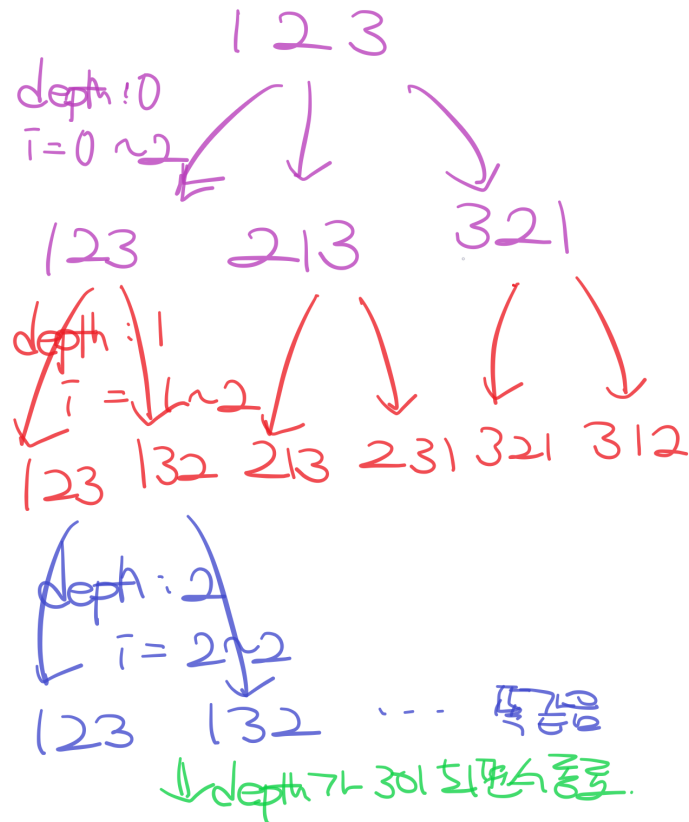 1 2 3
depth : 0
i = 0 ~ 2
123 213 321
depth : 1
i = 1 ~ 2
123 132 213 231 321 312
depth : 2
i = 2 ~ 2
123 132 ... 똑같음
depth가 3이 되면 종료.